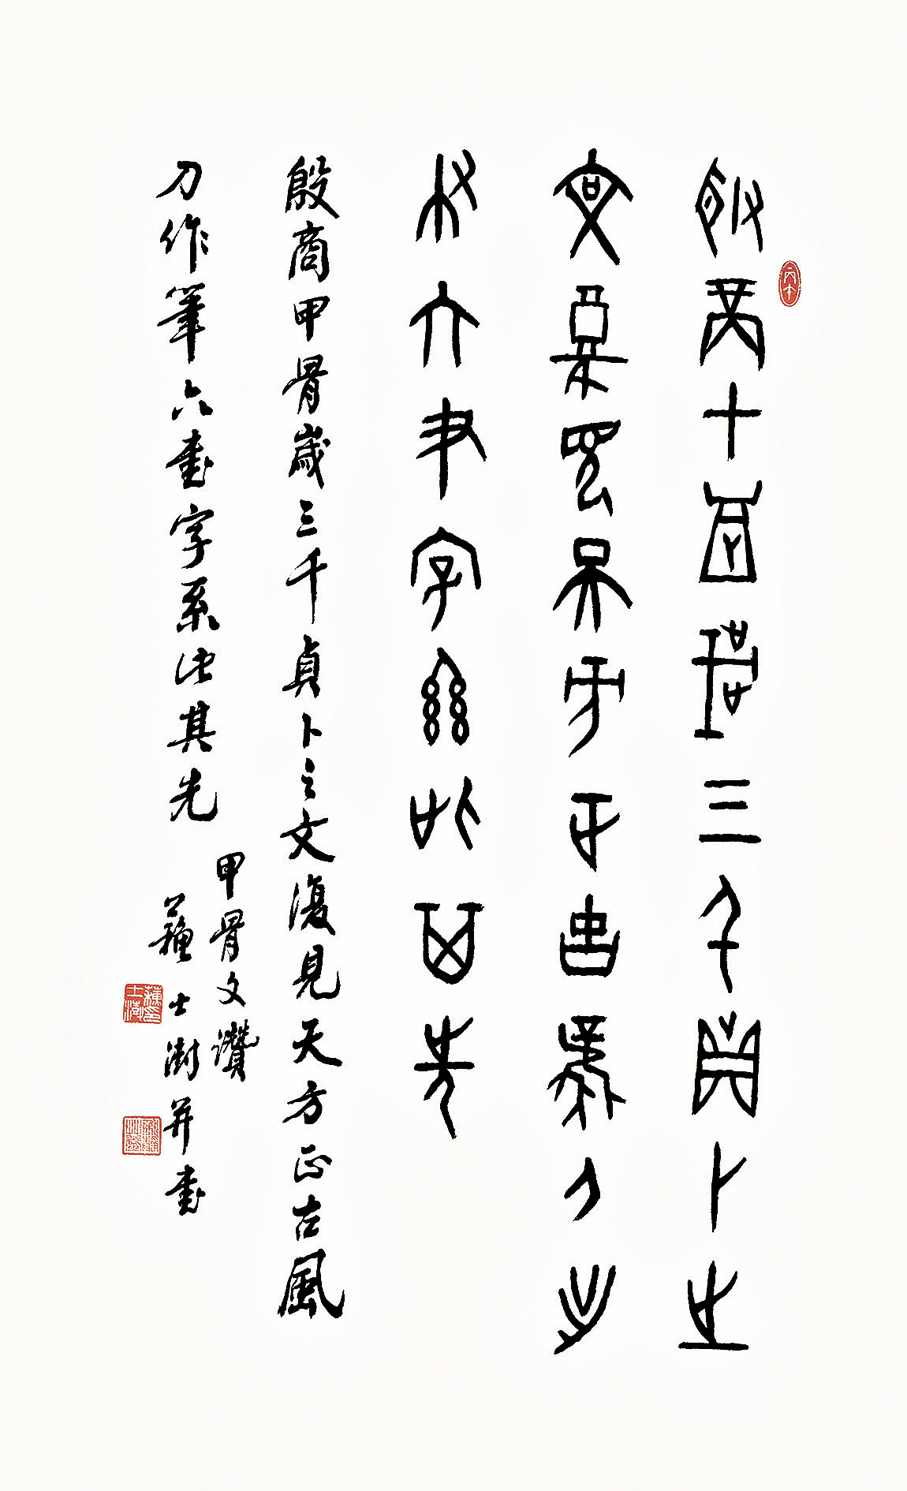 殷商甲骨歲三千貞卜之
文復見天方正古風刀作
筆六書字系此其先
殷商甲骨歲三千貞卜之文復見天方正古風
刀作筆六書字系此其先
甲骨文讚
蘇士澍并書